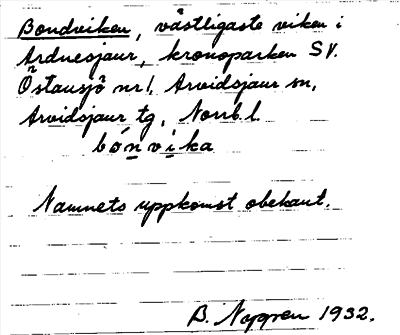 Bondviken, västligaste viken i
Ardnesjaur, kronoparken SV.
Östansjö nr 1, Arvidsjaur sn,
Arvidsjaur tg, Norrb. l.
bónvika
Namnets uppkomst obekant.
B. Nygren 1932.